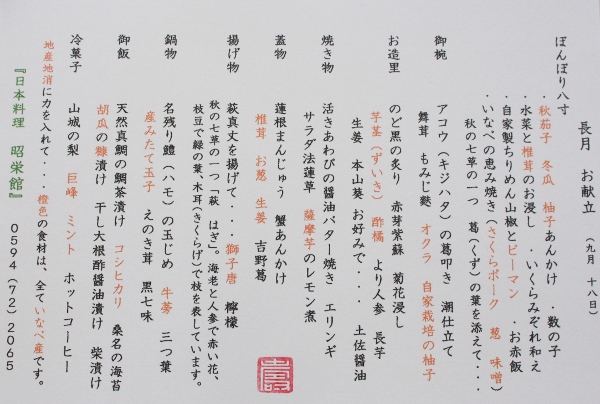 長月　お献立　（九月　十八日）
ぼんぼり八寸
・秋茄子　冬瓜　柚子あんかけ　・数の子
・水菜と椎茸のお浸し　・いくらみぞれ和え
・自家製ちりめん山椒とピーマン　・お赤飯
・いなべの恵み焼き（さくらポーク　葱　味噌）
秋の七草の一つ　葛（くず）の葉を添えて・・・
御椀　アコウ（キジハタ）の葛叩き　潮仕立て
舞茸　もみじ麩　オクラ　自家栽培の柚子
お造里　のど黒の炙り　赤芽紫蘇　菊花浸し
芋茎（ずいき）　酢橘　より人参　長芋
生姜　本山葵　お好みで・・・　土佐醤油
焼き物　活きあわびの醤油バター焼き　エリンギ
サラダ法蓮草　薩摩芋のレモン煮
蓋物　蓮根まんじゅう　蟹あんかけ
椎茸　お葱　生姜　吉野葛
揚げ物　萩真丈を揚げて・・・　獅子唐　檸檬
秋の七草の一つ「萩　はぎ」。海老と人参で赤い花、
枝豆で緑の葉、木耳（きくらげ）で枝を表しています。
鍋物　名残り鱧（ハモ）の玉じめ　牛蒡　三つ葉
産みたて玉子　えのき茸　黒七味
御飯　天然真鯛の鯛茶漬け　コシヒカリ　桑名の海苔
胡瓜の糠漬け　干し大根酢醤油漬け　柴漬け
冷菓子　山城の梨　巨峰　ミント　ホットコーヒー
地産地消に力を入れて・・・橙色の食材は、全ていなべ産です。
『日本料理　昭栄館』　０５９４（７２）２０６５
壽